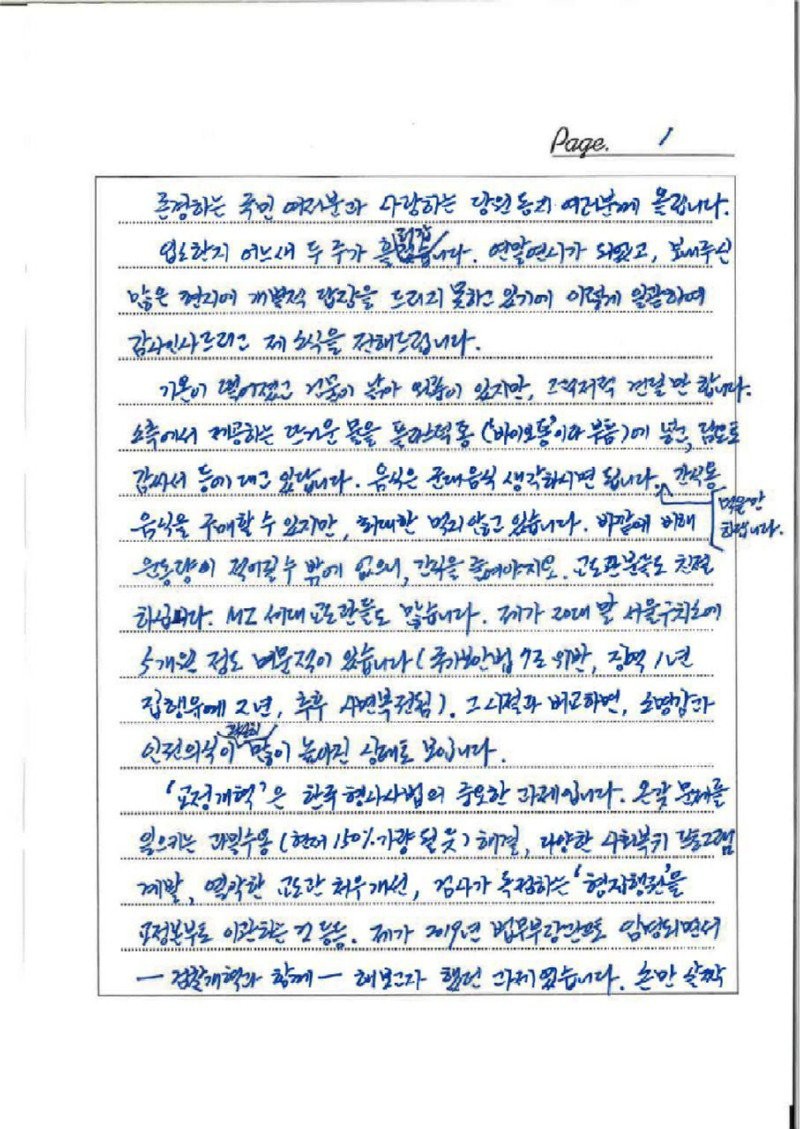 Page. 1
존경하는 국민 여러분과 사랑하는 당원동지 여러분께 올립니다.
입소한지 어느새 두 주가 흘렀습니다. 연말연시가 되었고, 보내주신
많은 편지에 개별적 답장을 드리지 못하고 있기에 이렇게 일괄하여
감사인사드리고 제 소식을 전해드립니다.
기온이 떨어졌고 건물이 낡아 외풍이 있지만, 그럭저럭 견딜 만 합니다.
소측에서 제공하는 뜨거운 물을 플라스틱 통('바이오통'이라 부름)에 넣은, 담요로
감싸서 등에 대고 있답니다. 음식은 군대음식 생각하시면 됩니다. 간식용
먹을만
하답니다.
음식을 구매할 수 있지만, 최대한 먹지 않고 있습니다. 바깥에 비해
운동량이 적어질 수 밖에 없으니, 간식을 줄여야지요. 교도관분들도 친절
하십니다. MZ 세대 교도관들도 많습니다. 제가 20대 말 서울구치소에
5개월 정도 머문적이 있습니다(국가보안법 7조 위반, 징역 1년
집행유예 2년, 추후 사면복권됨). 그 시절과 비교하면, 소명감과
인권의식이 많이 높아진 상태로 보입니다.
'교정개혁'은 한국 형사사법의 중요한 과제입니다. 온갖 문제를
일으키는 과밀수용(현재 150%가량 될 듯) 해결, 다양한 사회복귀 프로그램
계발, 열악한 교도관 처우개선, 검사가 독점하는 '형집행권'을
교정본부로 이관하는 것 등등. 제가 2019년 법무부장관으로 임명되면서
— 검찰개혁과 함께 — 해보고자 했던 과제였습니다. 손만 살짝